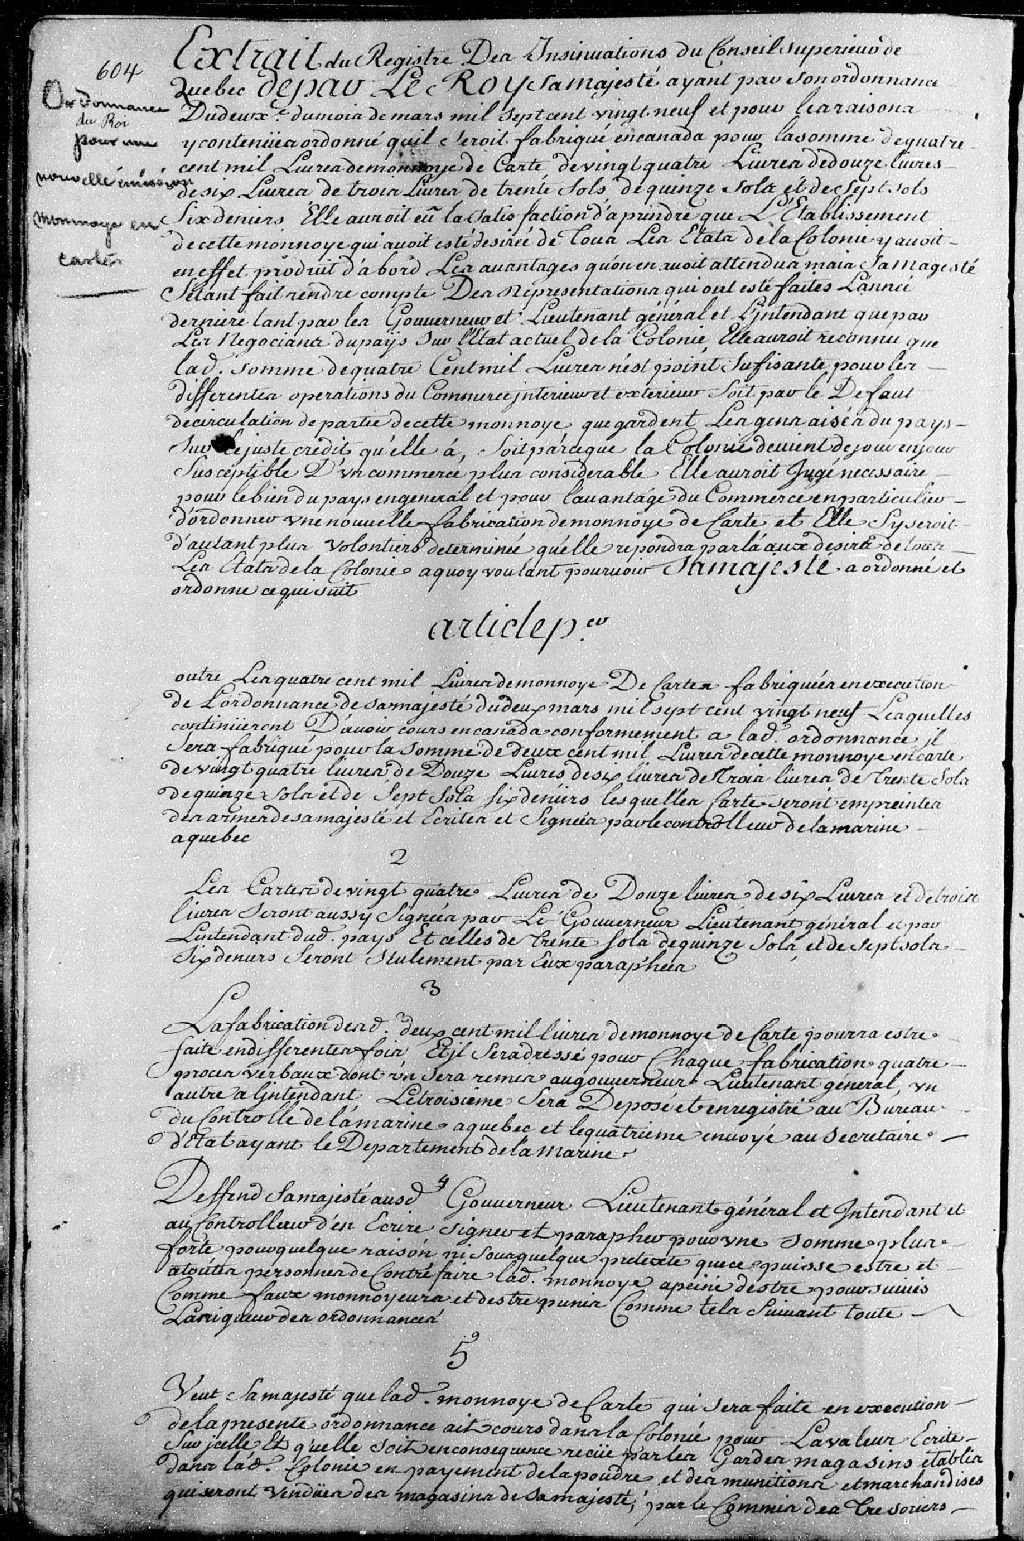 604
Ordonnance
du Roi
pour une
nouvelle émission
monnoye en
cartes
Extrait du Registre Des Insinuations du Conseil superieur de
Quebec de par Le Roy Sa majesté ayant par son ordonnance
Du deux.e du mois de mars mil sept cent vingt neuf et pour les raisons
y contenües ordonné quil seroit fabriqué en canada pour la somme de quatre
cent mil Livres de monnoye de Carte de vingt quatre Livres de douze livres
de six Livres de trois Livres de trente sols de quinze sols et de Sept sols
Six deniers Elle auroit eü la satisfaction d'aprendre que L'Etablissement
de cette monnoye qui avoit esté desirée de Tous Les Etats de la Colonie y avoit
en effet produit d'abord Les avantages quon en avoit attendus mais Sa Magesté
S'etant fait rendre compte Des Representations qui ont esté faites L'année
derniere tant par les Gouverneur et Lieutenant général et L'jntendant que par
Les Negocians du pays sur l'Etat actuel de la Colonie, Elle auroit reconnu que
lad. somme de quatre Cent mil Livres n'est point sufisante pour les
differentes operations du Commerce jnterieur et exterieur soit par le Defaut
de circulation de partie de cette monnoye que gardent Les gens aisés du pays
sur le juste credit qu'elle á, soit parceque la Colonie devient de jour en jour
susceptible D'vn commerce plus considerable Elle auroit Jugé necessaire
pour le bien du pays en general et pour l'avantage du Commerce en particulier
d'ordonner vne nouvelle fabrication de monnoye de Carte et Elle s'y seroit
d'autant plus volontiers determinée qu'elle repondra par là aux desirs de tous
Les Etats de la Colonie a quoy voulant pourvoir Sa majesté a ordonné et
ordonne ce qui suit
article p.er
outre Les quatre cent mil Livres de monnoye De Cartes fabriquées en execution
de L'ordonnance de sa majesté du deux mars mil sept cent vingt neuf Lesquelles
continüeront D'avoir cours en canada conformement a lad. ordonnance jl
sera fabriqué pour la somme de deux cent mil Livres de cette monnoye en carte
de vingt quatre livres de Douze Livres de six livres de Trois livres de Trente Sols
de quinze sols et de sept sols six deniers lesquelles Carte seront empreintes
des armes de sa majesté et Ecrites et Signées par le controlleur de la marine
a quebec
2
Les Cartes de vingt quatre Livres de Douze livres de six Livres et de trois
livres seront aussy signées par Le Gouverneur Lieutenant général et par
L'intendant dud. pays Et celles de Trente sols de quinze sols, et de sept sols
six deniers seront seulement par Eux paraphées
3
La fabrication desd. deux cent mil livres de monnoye de Carte pourra estre
faite en differentes fois, Et jl sera dressé pour Chaque fabrication quatre
procés verbaux dont vn sera remis au gouverneur Lieutenant général, vn
autre a L'jntendant Le troisieme sera Deposé et enregistré au Bureau
du Controlle de la marine a quebec et le quatrieme envoyé au secretaire
d'Etat ayant le Departement de la marine
4
Deffend Sa majesté ausd. Gouverneur Lieutenant général et Intendant et
au Controlleur d'en Ecrire signer et parapher pour vne somme plus
forte pour quelque raison ni sous quelque pretexte que ce puisse estre et
a toutes personnes de Contrefaire lad. monnoye a peine d'estre poursuivis
Comme faux monnoyeurs et destre punis Comme tels suivant toute
La rigueur des ordonnances
5
Veut sa majesté que lad. monnoye de Carte qui sera faite en execution
de la presente ordonnance ait cours dans la Colonie pour La valeur Ecrite
sur jcelle Et qu'elle soit en consequence reçüe par les Gardes magasins établis
dans lad. Colonie en payement de la poudre et des munitions et marchandises
qui seront vendües des magasins de sa majesté, par le Commis des Tresoriers